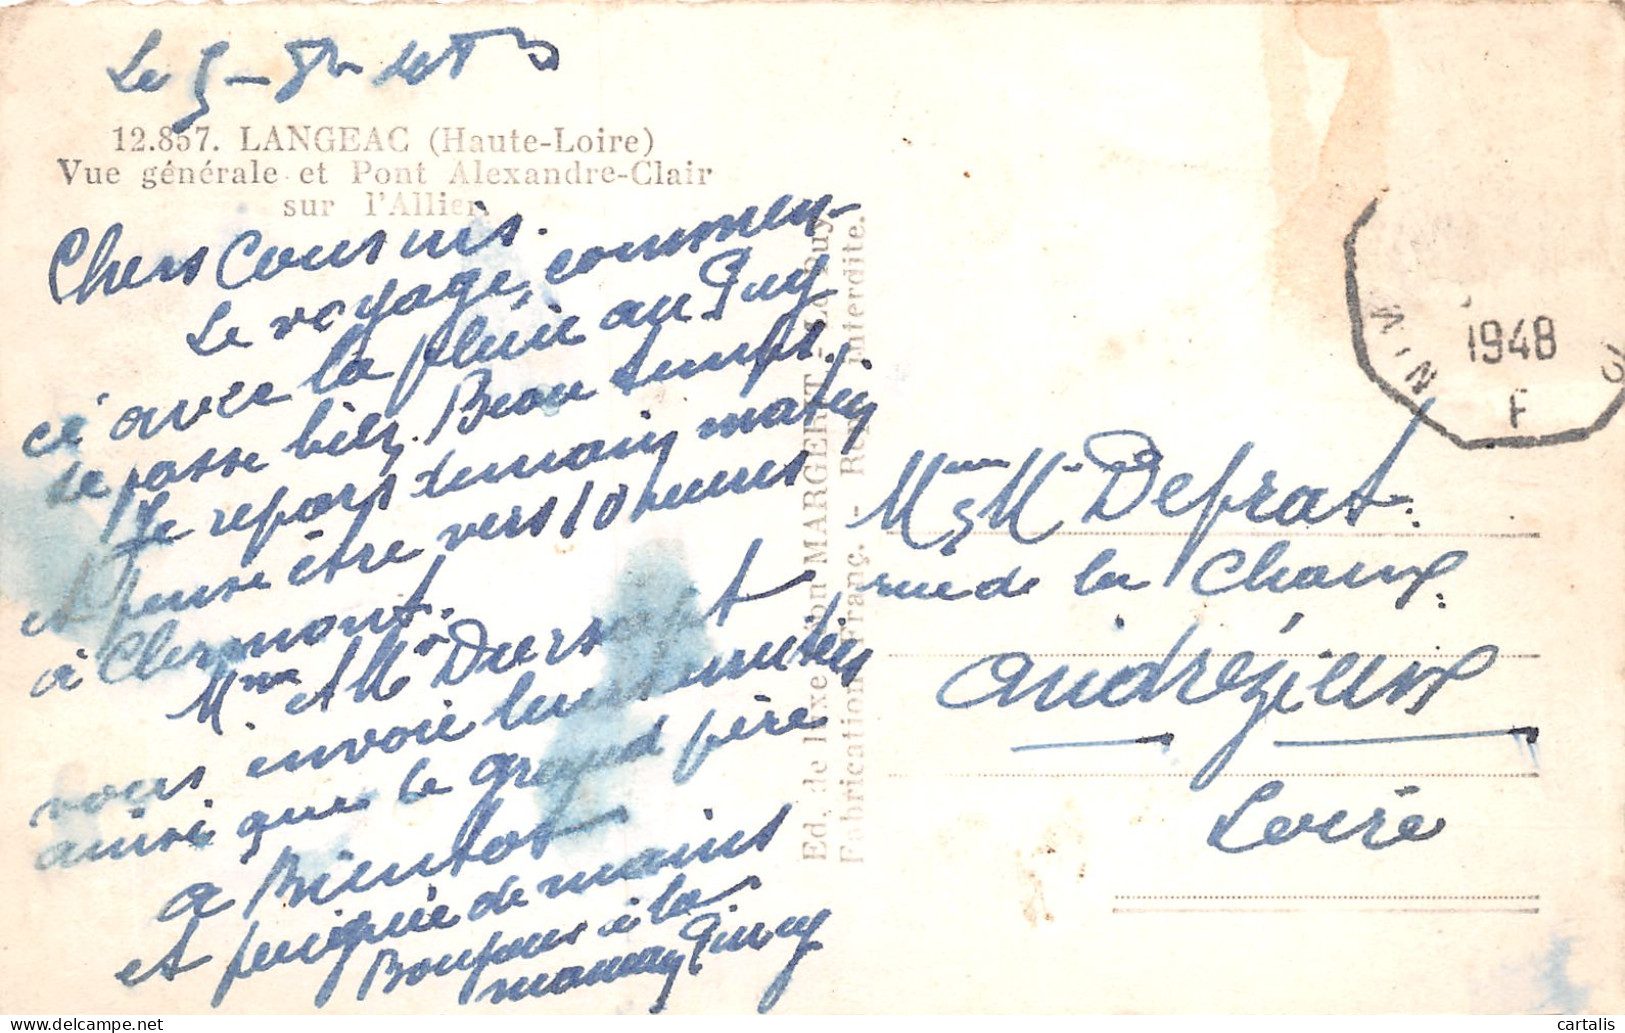 Le 5-8h
12.857. LANGEAC (Haute-Loire)
Vue générale et Pont Alexandre-Clair
sur l'Allier.
Chers Cousins.
Le voyage, commen-
cé avec la pluie au Puy
se passe bien. Beau temps.
Je repars demain matin
et peut être vers 10 heures
à Clermont.
Mme et Mr
vous envoie leurs amitiés
ainsi que le grand père
a Bientot
et poignée de mains
Bonjour à la
maman
Ed. de luxe Léon MARGERIT - Le Puy
Fabrication Franç. - Rep. interdite.
1948
F
Mme & Mr Defrat.
rue de la Chaux.
andrézieux
Loire
cartalis
www.delcampe.net